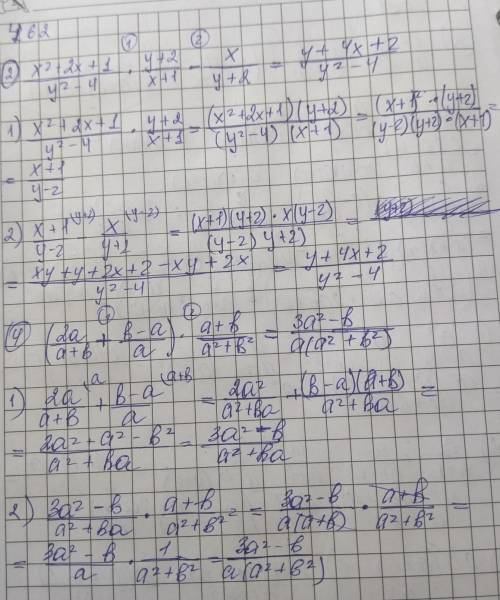 762
② (x²+2x+1)/(y²-4) · (y+2)/(x+1) - x/(y+2) = (y+4x+2)/(y²-4)
1) (x²+2x+1)/(y²-4) · (y+2)/(x+1) = ((x²+2x+1)(y+2))/((y²-4)(x+1)) = ((x+1)²·(y+2))/((y-2)(y+2)·(x+1)) =
= (x+1)/(y-2)
2) (x+1)/(y-2) (y+2) - x/(y+2) (y-2) = ((x+1)(y+2)·x(y-2))/((y-2)(y+2)) =
= (xy+y+2x+2-xy+2x)/(y²-4) = (y+4x+2)/(y²-4)
④ (2a/(a+b) + (b-a)/a) · (a+b)/(a²+b²) = (3a²-b)/(a(a²+b²))
1) 2a/(a+b) (a + (b-a)/a (a+b = 2a²/(a²+ba) + ((b-a)(a+b))/(a²+ba) =
= (2a²+a²-b²)/(a²+ba) = (3a²-b)/(a²+ba)
2) (3a²-b)/(a²+ba) · (a+b)/(a²+b²) = (3a²-b)/(a(a+b)) · (a+b)/(a²+b²) =
= (3a²-b)/a · 1/(a²+b²) = (3a²-b)/(a(a²+b²))